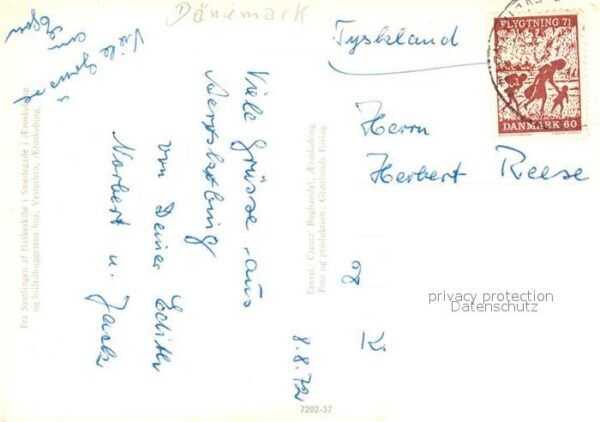 Dänemark
Viele Grüsse
an
Egon
Viele Grüsse aus
von Deiner Edith
Norbert u.
8.8.72
Fra Samlingen af flaskeskibe i Smedegade i Ærøskøbing
og billedhuggerens hus, Vesterbro, Ærøskøbing.
Eneret: Creutz' Boghandel, Ærøskøbing
Foto og produktion: Grønlunds Forlag
7202-37
Tyskland
FLYGTNING 71
DANMARK 60
Herrn
Herbert Reese
privacy protection
Datenschutz
K.